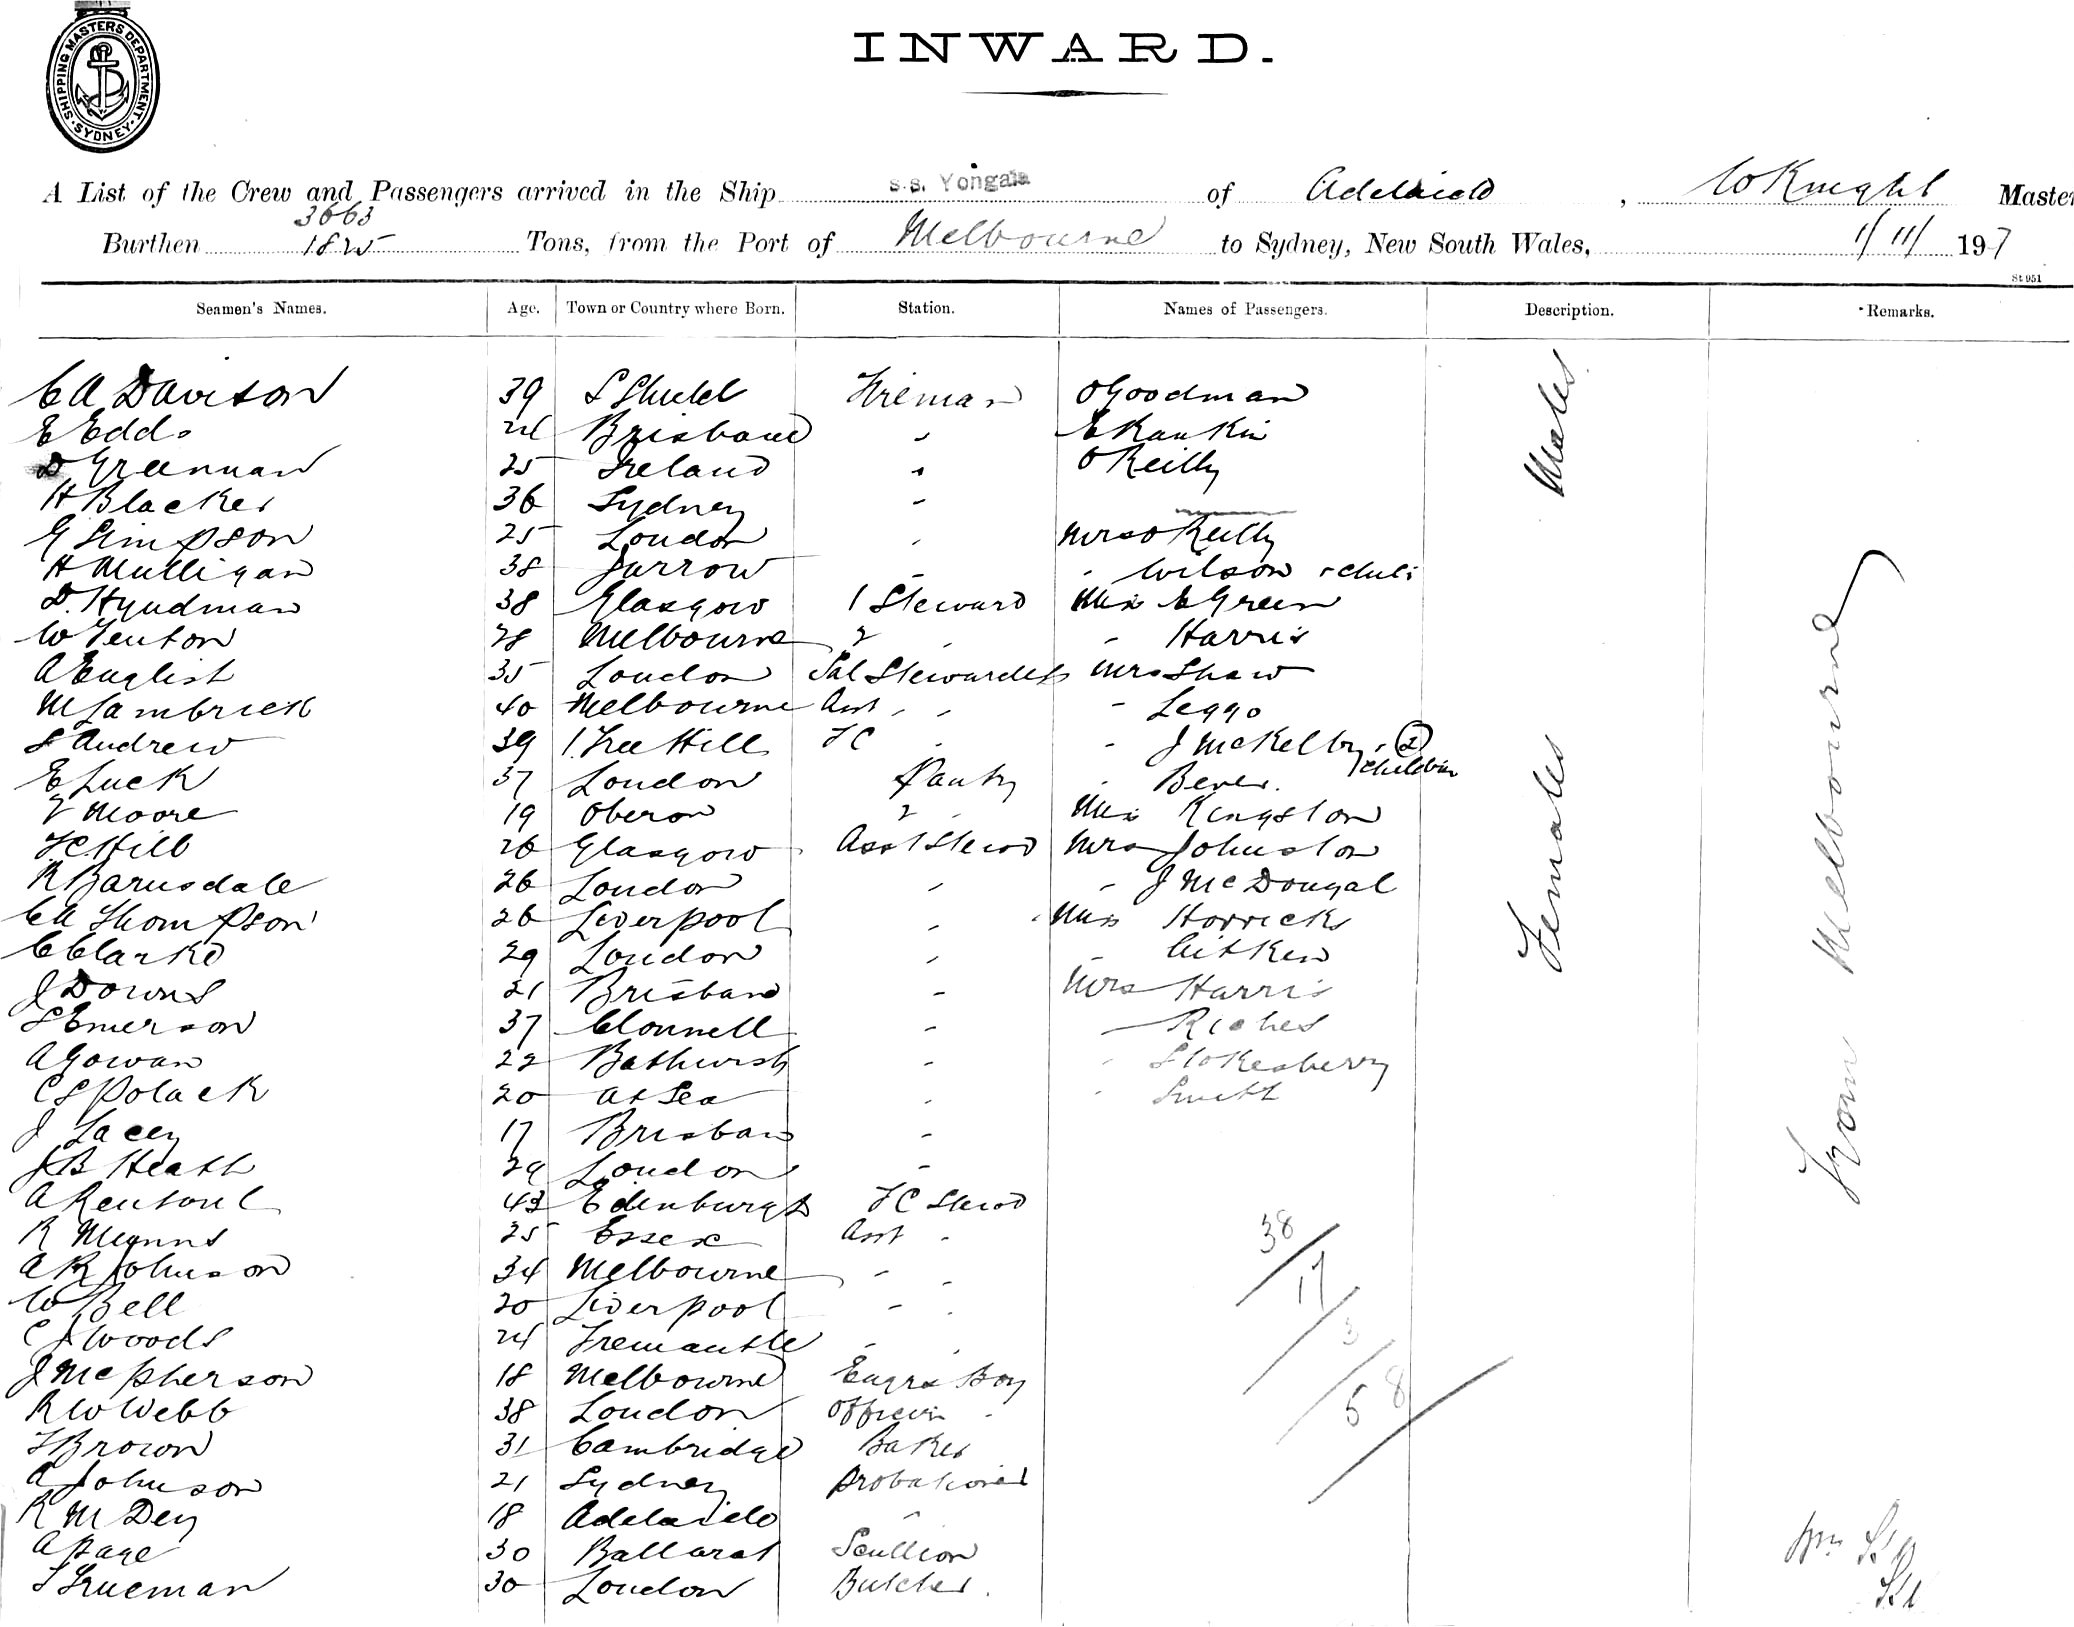 SHIPPING MASTERS DEPARTMENT. SYDNEY.
INWARD.
A List of the Crew and Passengers arrived in the Ship s.s. Yongala of Adelaide, W Knight Master
3663
Burthen 1825 Tons, from the Port of Melbourne to Sydney, New South Wales, 1/11/ 197
St 951
Seamen's Names. Age. Town or Country where Born. Station. Names of Passengers. Description. Remarks.
C A Davison 39 S Shield Fireman O Goodman Males
E Edds 24 Brisbane " E Rankin
D Grennan 25 Ireland " O Reilly
H Blacker 36 Sydney "
G Simpson 25 London " Mrs O Reilly
H Mulligan 38 Jarrow " " Wilson
D. Hyndman 38 Glasgow 1 Steward Miss E Green
W Fenton 28 Melbourne 2 " " Harris
A English 35 London Sal Stewardess Mrs Shaw
M Lambrick 40 Melbourne Asst " " " Leggo
S Andrew 39 1. Tree Hill FC " " J McKelby 2
E Luck 37 London Pantry " Bever. children
V Moore 19 Oberon 2 " Miss Kingston
F C Hill 26 Glasgow Asst Stewd Mrs Johnston
R Barnsdale 26 London " " J McDougal
C A Thompson 26 Liverpool " Miss Horricks
C Clarke 29 London " " Aitken
J Downs 21 Brisbane " Mrs Harris
S Emerson 37 Clonnell " " Riches
A Gowan 22 Bathurst " " Stokesberry
C S Polack 20 At Sea " " Smith
J Lacey 17 Brisbane "
J B Heath 29 London "
A Rentoul 43 Edenburgh FC Stewd
R Mynns 25 Essex Asst "
A R Johnson 34 Melbourne " "
W Bell 20 Liverpool " "
C J Woods 24 Fremantle " "
J McPherson 18 Melbourne Engrs Boy
R W Webb 38 London Officers "
T Brown 31 Cambridge Baker
A Johnson 21 Sydney Probationer
R M Dey 18 Adelaide "
A Page 30 Ballarat Scullion
T Trueman 30 London Butcher.
Females
From Melbourne
38/
17/
3/
58/